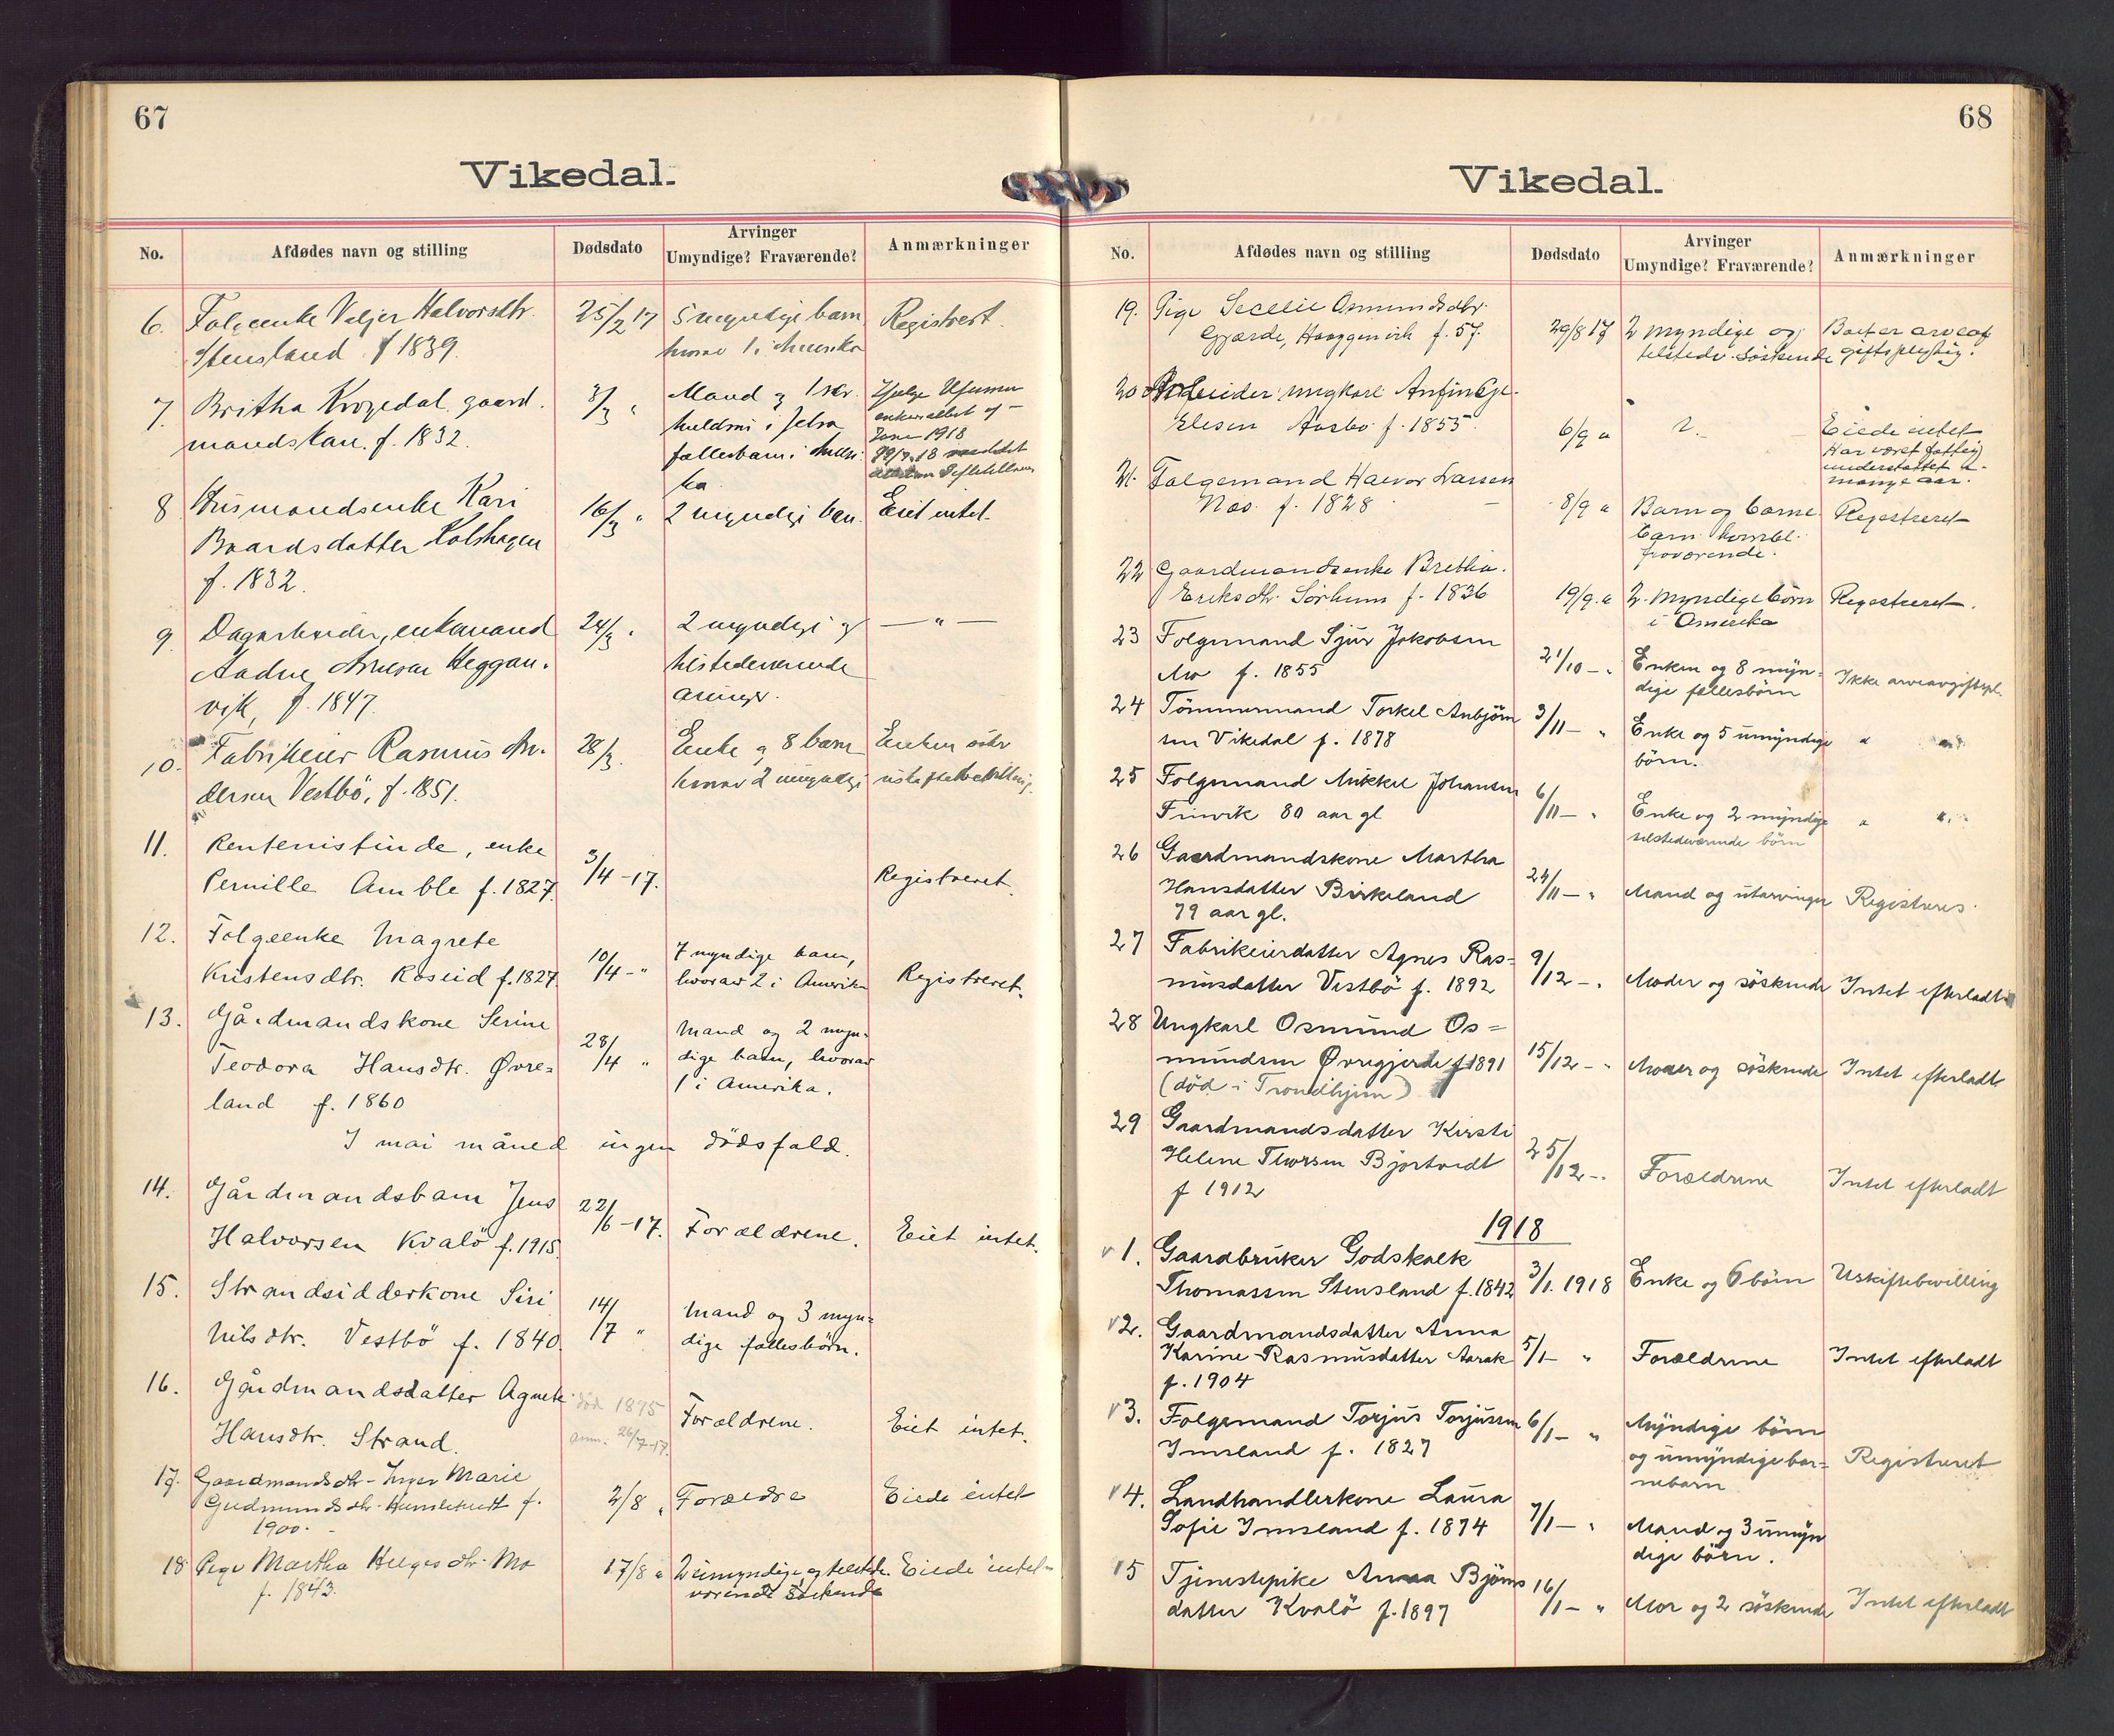 67
Vikedal.
No.
Afdødes navn og stilling
Dødsdato
Arvinger
Umyndige? Fraværende?
Anmærkninger
6. Folgeenke Valjer Halvorsdtr. 25/2 17 5 myndige barn Registrert.
Stensland f 1839. hvorav 1 i Amerika
7. Britha Krogedal, gaard- 3/3 " Mand og 1 sær-
mandskone. f. 1832. kuldsøn i
fællesbarn i Ameri-
ka.
8 Husmandsenke Kari 16/3 " 2 myndige barn Eiet intet.
Baardsdatter Kolshagen
f. 1832.
9. Dagarbeider, enkemand 24/3 " 2 myndige og — " —
Aadne Arnesen Heggan-
tilstedeværende
vik, f. 1847. arvinger.
10. Fabrikeier Rasmus An- 28/3. Enke og 8 barn Enken
dersen Vestbö, f. 1851. hvorav 2 umyndige uskiftebevilling.
11. Rentenistinde, enke
Pernille Amble f. 1827. 3/4-17. Registreret.
12. Folgeenke Magrete 10/4-" 7 myndige barn,
Kristensdtr. Røseid f. 1827. hvorav 2 i Amerika Registreret.
13. Gårdmandskone Serine 28/4 " Mand og 2 myn-
Teodora Hansdtr. Øvre- dige barn, hvorav
land f. 1860 1 i Amerika.
I mai måned ingen dödsfald.
14. Gårdmandsbarn Jens 22/6-17.
Halvorsen Kvalö f. 1915. Forældrene. Eiet intet.
15. Strandsidderkone Siri 14/7 " Mand og 3 myn-
Nilsdtr. Vestbö f. 1840. dige fællesbörn.
16. Gårdmandsdatter Agnete död 1875
Hansdtr. Strand. anm. 26/7-17. Forældrene. Eiet intet.
17. Gaardmandsdtr. Inger Marie
Gudmundsdtr. f. 2/8 " Forældre Eiede intet
1900.
18 Pige Martha Helgesdtr. Mo 17/8 " 2 umyndige og tilstede- Eiede intet
f. 1843. værende söskende
68
Vikedal.
No.
Afdødes navn og stilling
Dødsdato
Arvinger
Umyndige? Fraværende?
Anmærkninger
19. Pige Secelie Osmundsdtr. 29/8 17 2 myndige og Boet er arveaf
Gjærde, f. 57. tilstede. Söskende giftspligtig.
20 Arbeider ungkarl
Elisen Aasbö f. 1855. 6/9 " Eiede intet
Har været fattig
understöttet i
mange aar.
21. Folgemand Haevor Larsen 8/9 " Barn og barne Registreret
Næs f. 1828
barn
fraværende.
22 Gaardmandsenke Bretha
Eriksdtr. Sörhum f. 1836 19/9. " 2 myndige börn Registreret.
i Amerika
23 Folgemand Sjur Jakobsen 21/10 - " Enken og 8 myn- Ikke arveavgiftspl.
Mo f. 1855 dige fællesbörn
24 Tömmermand Torkel Anbjörn 3/11 - " Enke og 5 umyndige " "
sen Vikedal f. 1878 börn.
25 Folgemand Mikkel Johansen 6/11 - " Enke og 2 myndige " "
80 aar gl tilstedeværende börn
26 Gaardmandskone Martha 24/11 - " Mand og utarvinger Registreres.
Hansdatter Birkeland
79 aar gl.
27 Fabrikeierdatter Agnes Ras- 9/12 - " Moder og söskende Intet efterladt
musdatter Vestbö f. 1892
28 Ungkarl Osmund Os- 15/12 - " Moder og söskende Intet efterladt
mundsen Øvregjerde f 1891
(död i Trondhjem)
29 Gaardmandsdatter Kirsti 25/12 - " Forældrene Intet efterladt
Helene Thorsen Bjortvedt
f 1912
1918
v 1. Gaardbruker Godskalk
Thomassen Stensland f. 1842 3/1. 1918 Enke og 6 börn Uskiftebevilling
v 2. Gaardmandsdatter Anna 5/1 - " Forældrene Intet efterladt
Karine Rasmusdatter Aarak
f. 1904
v 3. Folgemand Torjus Torjussen 6/1 - " Myndige börn
Imsland f. 1827 og umyndige bar- Registreret
nebarn
v 4. Landhandlerkone Laura 7/1 - " Mand og 3 umyn
Sofie Imsland f. 1874 dige börn.
v 5 Tjenestepike Anna Björns 16/1 - " Mor og 2 söskende Intet efterladt
datter Kvalö f. 1897